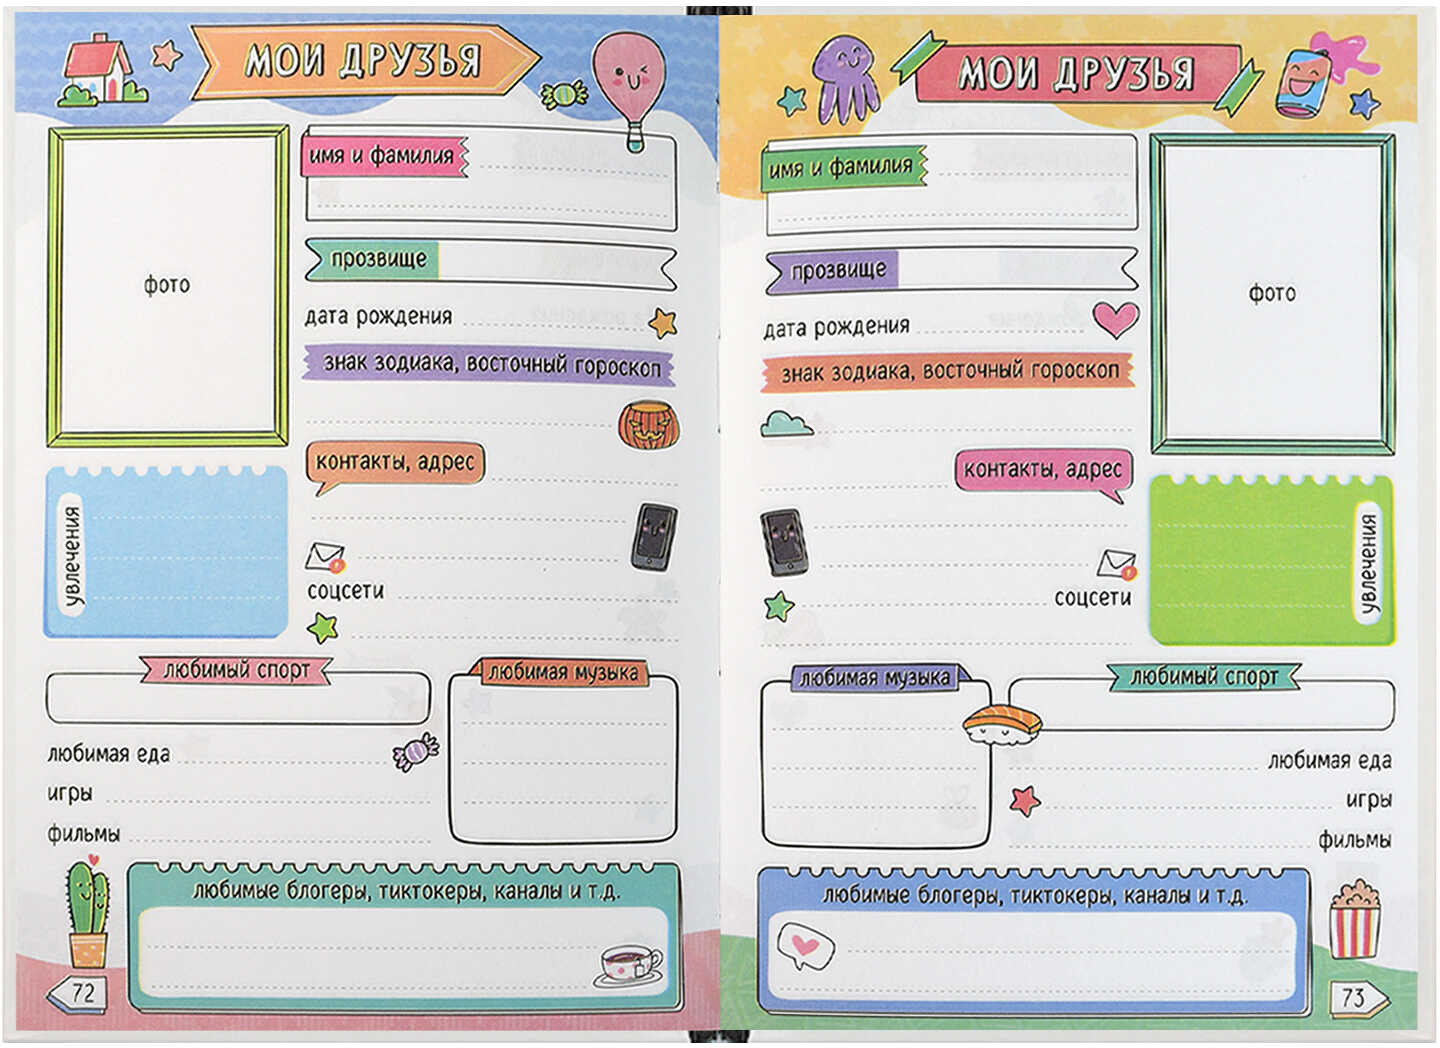 МОИ ДРУЗЬЯ
фото
имя и фамилия
прозвище
дата рождения
знак зодиака, восточный гороскоп
контакты, адрес
соцсети
увлечения
любимый спорт
любимая музыка
любимая еда
игры
фильмы
любимые блогеры, тиктокеры, каналы и т.д.
72
МОИ ДРУЗЬЯ
имя и фамилия
прозвище
дата рождения
знак зодиака, восточный гороскоп
фото
контакты, адрес
соцсети
увлечения
любимая музыка
любимый спорт
любимая еда
игры
фильмы
любимые блогеры, тиктокеры, каналы и т.д.
73